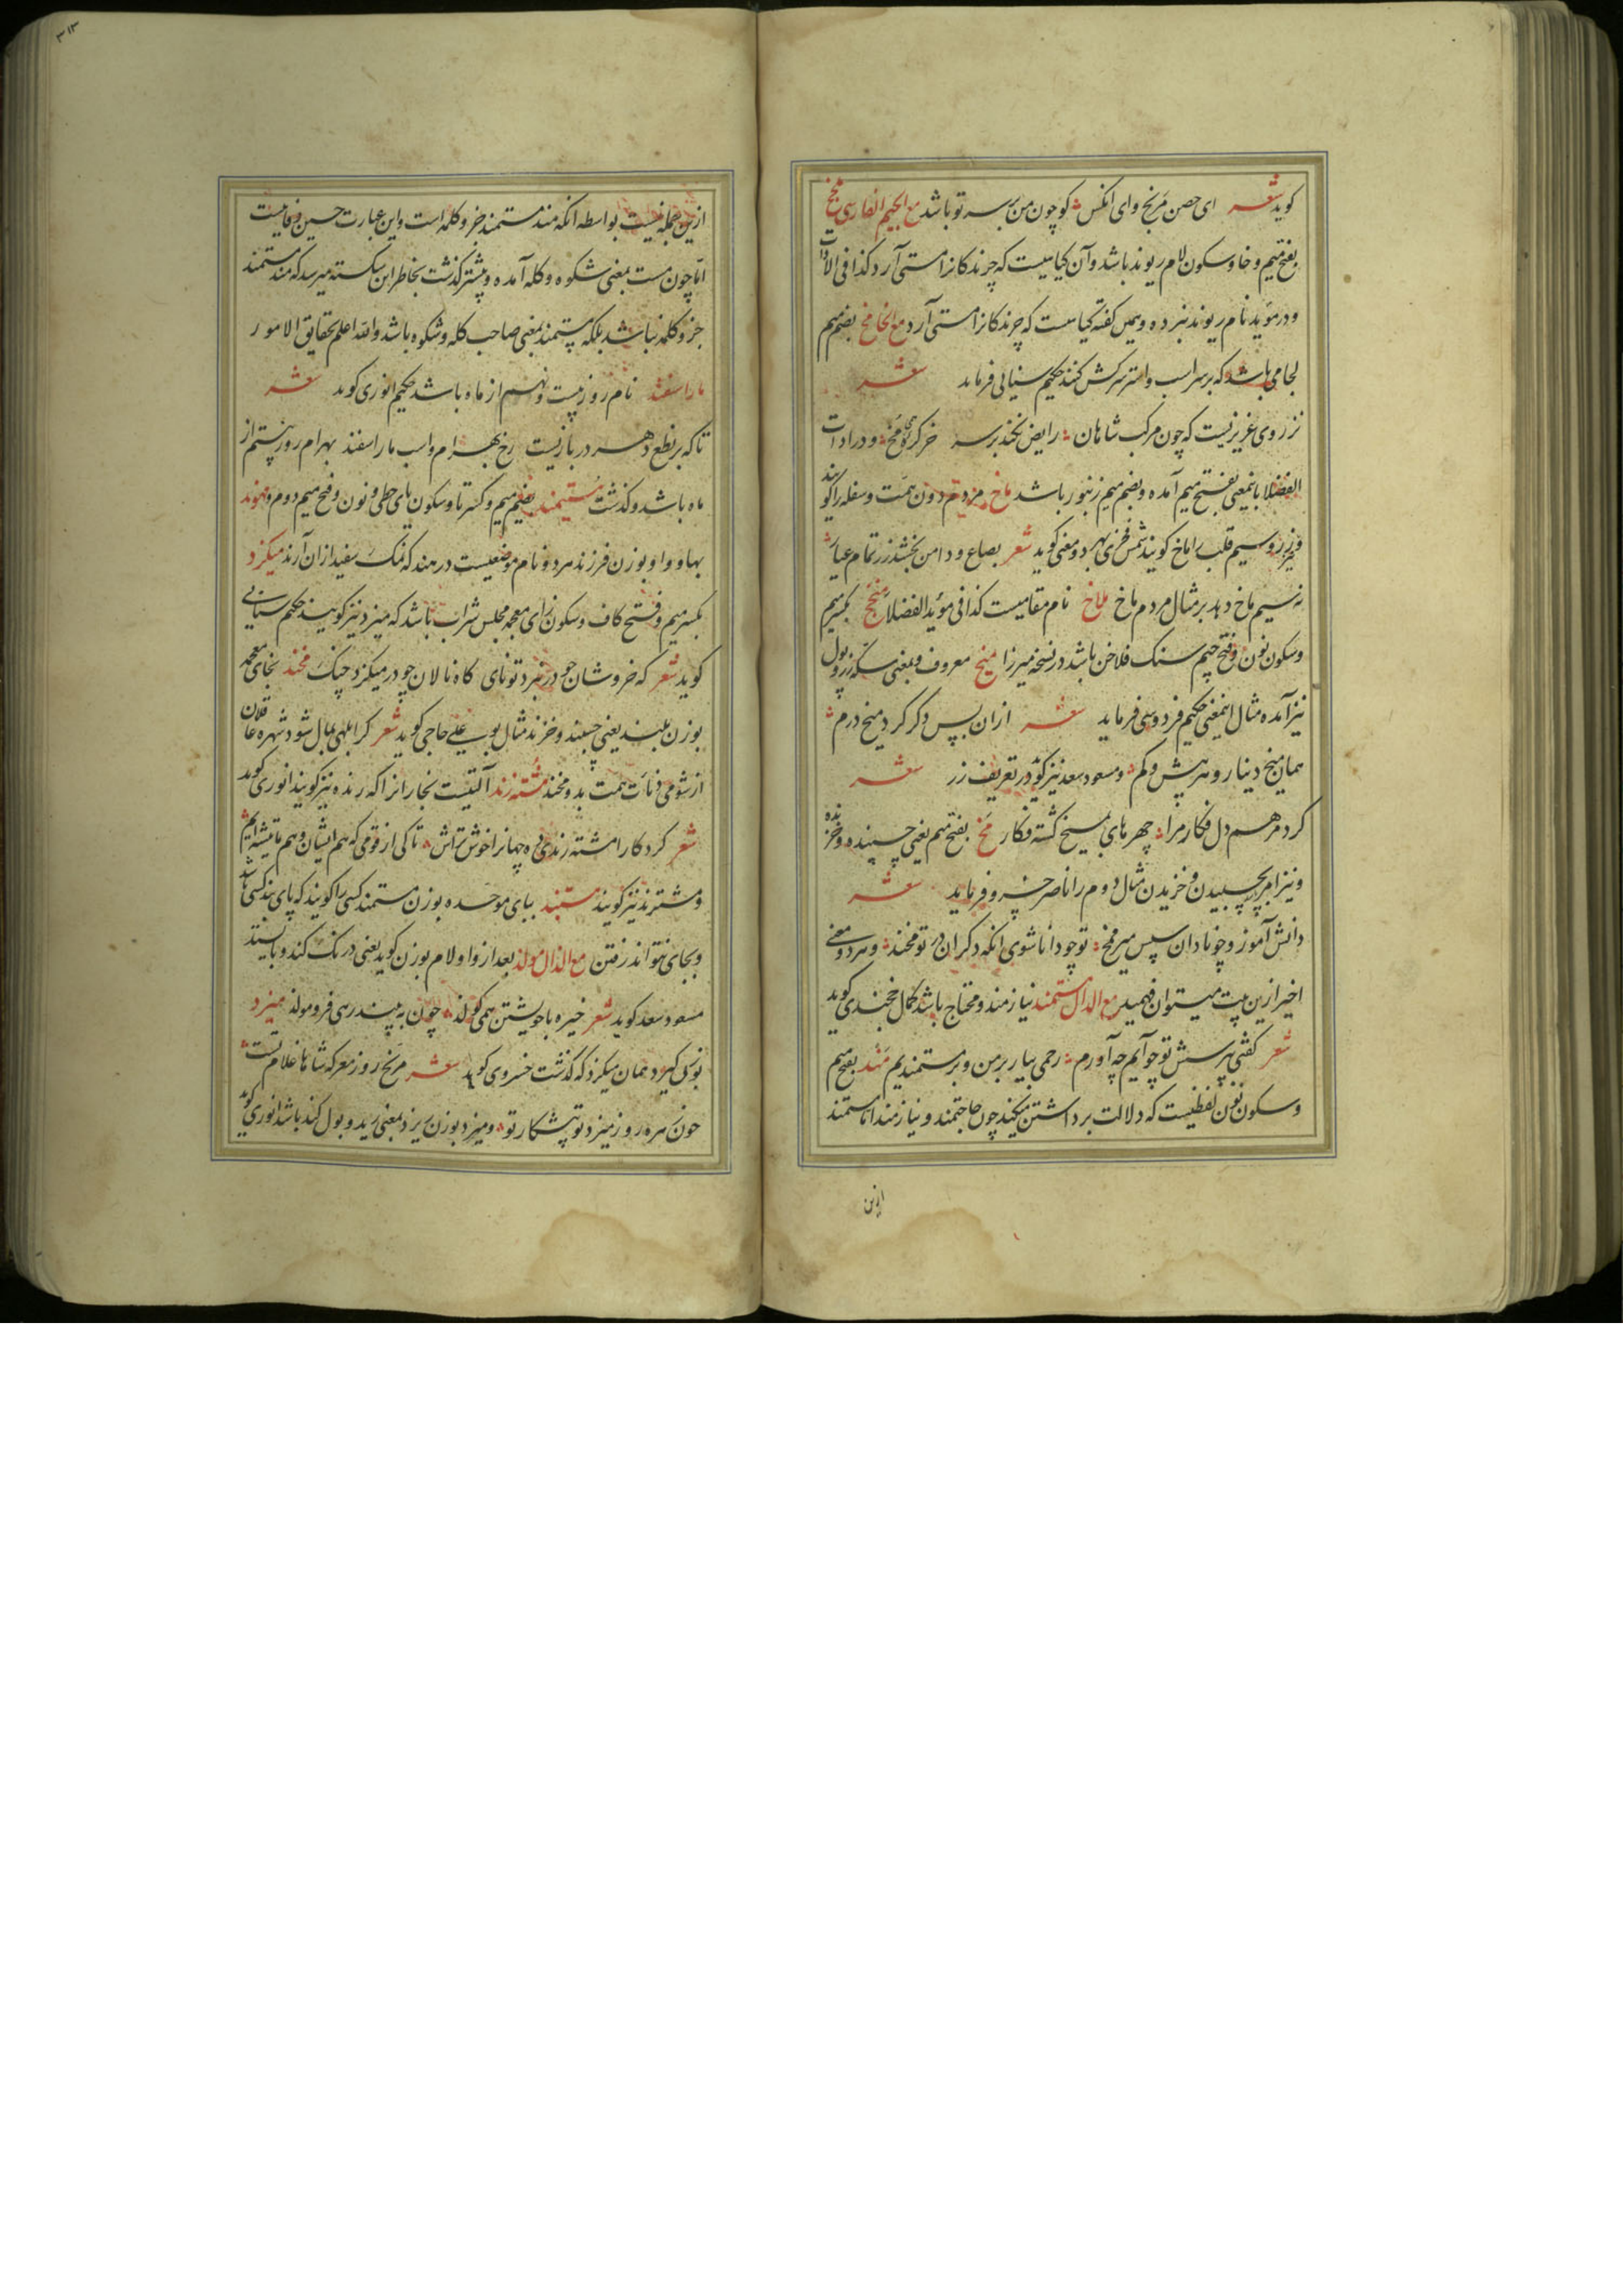 گوید شعر ای حصن مریخ وای انکس کو چون من بسر تو باشد مع الجیم الفارسی مخ
بفتح میم و خا و سکون لام ریوند باشد وآن کیاهیست که چرندکانرا مستی آرد کذا فی الادات
و در مؤید نام ریوند نبرده و همین کفته کیاهست که چرندکانرا مستی آرد مع الخا مخ بضم میم
لجامی باشد که بر سر اسب و استر سرکش کنند حکیم سنایی فرماید شعر
نز روی عزیزیست که چون مرکب شاهان رایض نکند بر سر خر کره مخ و در ادات
الفضلا باینمعنی بفتح میم آمده و بضم میم زنبور باشد ماخ مردم دون همت و سفله را کویند
و نیز زر و سیم قلب را ماخ کویند شمس فخری بهر دو معنی کوید شعر بصاع و دامن بخشد زر تمام عیار
نه سیم ماخ دهد بر مثال مردم ماخ ملاخ نام مقامیست کذا فی مؤید الفضلا منجخ بکسر میم
و سکون نون و فتح جیم سنک فلاخن باشد در نسخه میرزا میخ معروف و بمعنی سکه زر و پول
نیز آمده مثال اینمعنی حکیم فردوسی فرماید شعر ازان پس دکر کرد میخ درم
همان میخ دینار و هر بیش و کم و مسعود سعد نیز کوید در تعریف زر شعر
کرد مرهم دل فکار مرا چهر های بمیخ کشته فکار مخ بفتح میم یعنی چسپنده و خزنده
و نیز امر بچسپیدن و خزیدن مثال دوم را ناصر خسرو فرماید شعر
دانش آموز و چو نادان سپس میر مخ تو چو دانا شوی انکه دکران در تو مخند و هر دو معنی
اخیر ازین بیت میتوان فهمید مع الدال مستمند نیازمند و محتاج باشد کمال خجندی کوید
شعر کفتی بپرسش تو چو آیم چه آورم رحمی بیار بر من و بر مستمندیم مند بفتح میم
و سکون نون لفظیست که دلالت بر داشتن میکند چون حاجتمند و نیازمند اما مستمند
ازین
۳۱۳
ازین جمله نیست بواسطه انکه مند مستمند جزو کلمه است و این عبارت حسین وفاییست
اما چون مست بمعنی شکوه و کله آمده و پیشتر کذشت بخاطر این شکسته میرسد که مند مستمند
جزو کلمه نباشد بلکه مستمند بمعنی صاحب کله و شکوه باشد والله اعلم بحقایق الامور
ماراسفند نام روز بیست و نهم از ماه باشد حکیم انوری کوید شعر
تا که بر نطع دهر در بازیست رخ بهرام و اسب ماراسفند بهرام روز بیستم از
ماه باشد و کذشت مستیمند بضم میم و کسر تا و سکون یای حطی و نون و فتح میم دوم و مهوند
بها و واو بوزن فرزند هر دو نام موضعیست در هند که نمک سفید ازان آرند میکزد
بکسر میم و فتح کاف و سکون زای معجمه مجلس شراب باشد که میزد نیز کویند حکیم سنایی
کوید شعر که خروشان چو در نبرد تو نای کاه نالان چو در میکزد چنک مخند بخای معجمه
بوزن بلند یعنی چسپند و خزند مثال بو علی حاجی کوید شعر کر ابلهی بمال شود شهره عاقلان
از شومی دنائت همت بدو مخند مشته رند آلتیست نجارانرا که رنده نیز کویند انوری کوید
شعر کرد کار را مشته رندی ده جهانرا خوش تراش تا کی از قومی که هم ایشان و هم ما تیشه ایم
و مشترند نیز کویند مستبند ببای موحده بوزن مستمند کسی را کویند که پای بند کسی باشد
و بجای نتواند رفتن مع الذال مولذ بعد از واو لام بوزن کوید یعنی درنک کند و بایستد
مسعود سعد کوید شعر خیره با خویشتن همی کولذ چون به پیند رهی فرو مولذ میزد
بوزن کیرد همان میکزد که کذشت خسروی کوید شعر مریخ روز معرکه شاها غلام تست
چون زهره روز میزد تو پیشکار تو و میزد بوزن یزد بمعنی رید و بول کند باشد انوری کوید